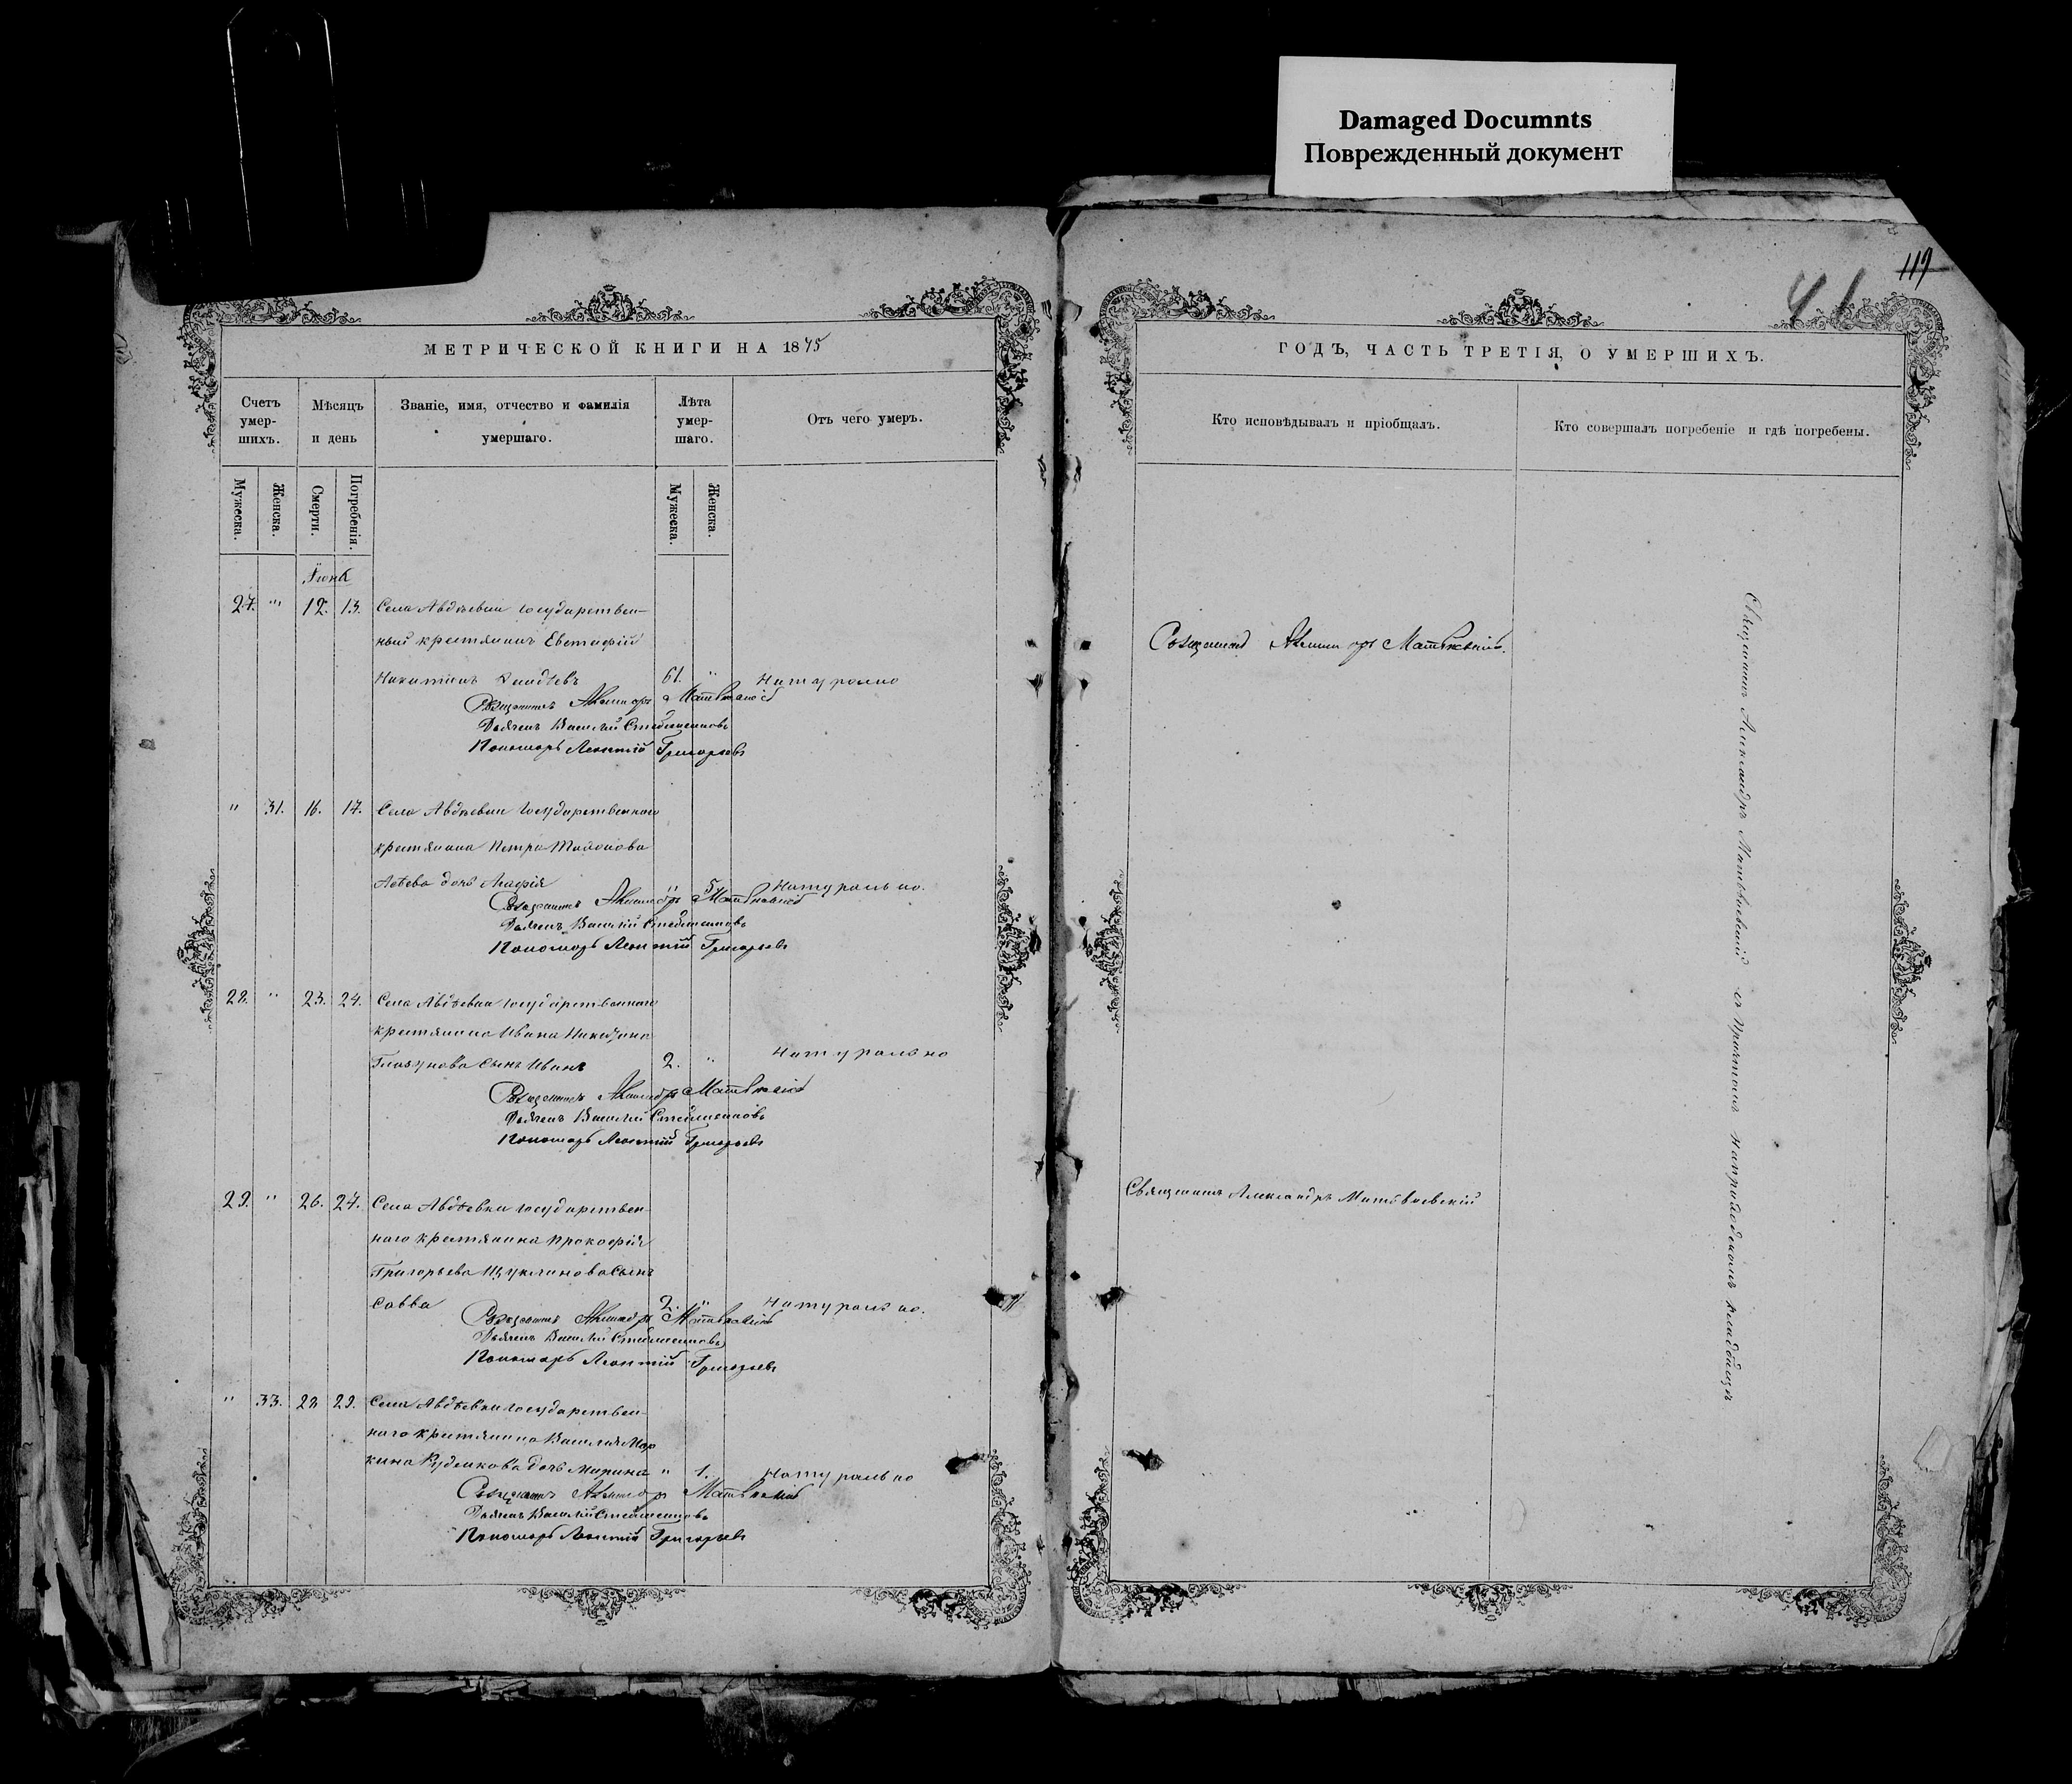 Damaged Documnts
Поврежденный документ
119
41
МЕТРИЧЕСКОЙ КНИГИ НА 1875
Счетъ умер-шихъ.
Мѣсяцъ и день
Званіе, имя, отчество и фамилія умершаго.
Лѣта умер-шаго.
Отъ чего умеръ.
Мужеска.
Женска.
Смерти.
Погребенія.
Мужеска.
Женска.
27. " 12. 13. Села Авдѣевки государствен-
ный крестьянинъ Евстафій
Никитинъ 61. " Натурально
Священникъ Александръ Матвѣевскій
Дьячекъ Василій
Пономарь Леонтій Григорьевъ
" 31. 16. 17. Села Авдѣевки государственнаго
крестьянина Петра
дочь Агафія " 5. Натурально.
Священникъ Александръ Матвѣевскій
Дьячекъ Василій
Пономарь Леонтій Григорьевъ
28. " 23. 24. Села Авдѣевки государственнаго
крестьянина Ивана
Глазунова сынъ Иванъ 2. " Натурально
Священникъ Александръ Матвѣевскій
Дьячекъ Василій
Пономарь Леонтій Григорьевъ
29. " 26. 27. Села Авдѣевки государствен-
наго крестьянина Прокофія
Григорьева сынъ
Савва 2. " Натурально.
Священникъ Александръ Матвѣевскій
Дьячекъ Василій
Пономарь Леонтій Григорьевъ
" 33. 28 29. Села Авдѣевки государствен-
наго крестьянина Василія Мар
кина дочь Марина " 1. Натурально
Священникъ Александръ Матвѣевскій
Дьячекъ Василій
Пономарь Леонтій Григорьевъ
ГОДЪ, ЧАСТЬ ТРЕТІЯ, О УМЕРШИХЪ.
Кто исповѣдывалъ и пріобщалъ.
Кто совершалъ погребеніе и гдѣ погребены.
Священникъ Александръ Матвѣевскій.
Священникъ Александръ Матвѣевскій
Священникъ Александръ Матвѣевскій съ причтомъ на приходскомъ кладбищѣ